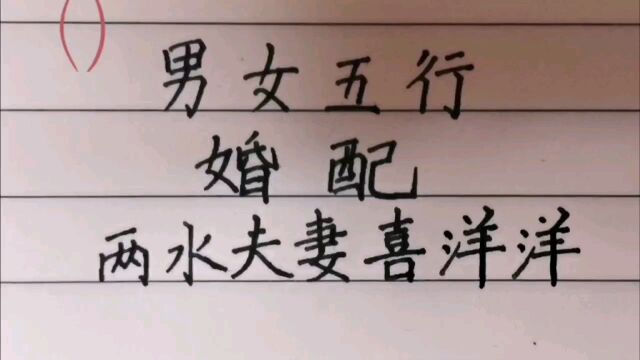 男女五行
婚配
两水夫妻喜洋洋